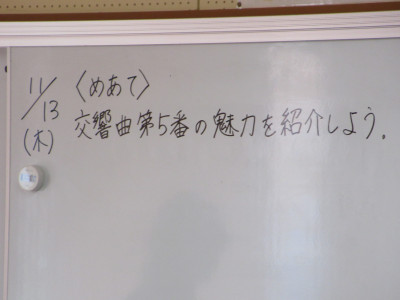 11/13 〈めあて〉
(木) 交響曲第5番の魅力を紹介しよう.